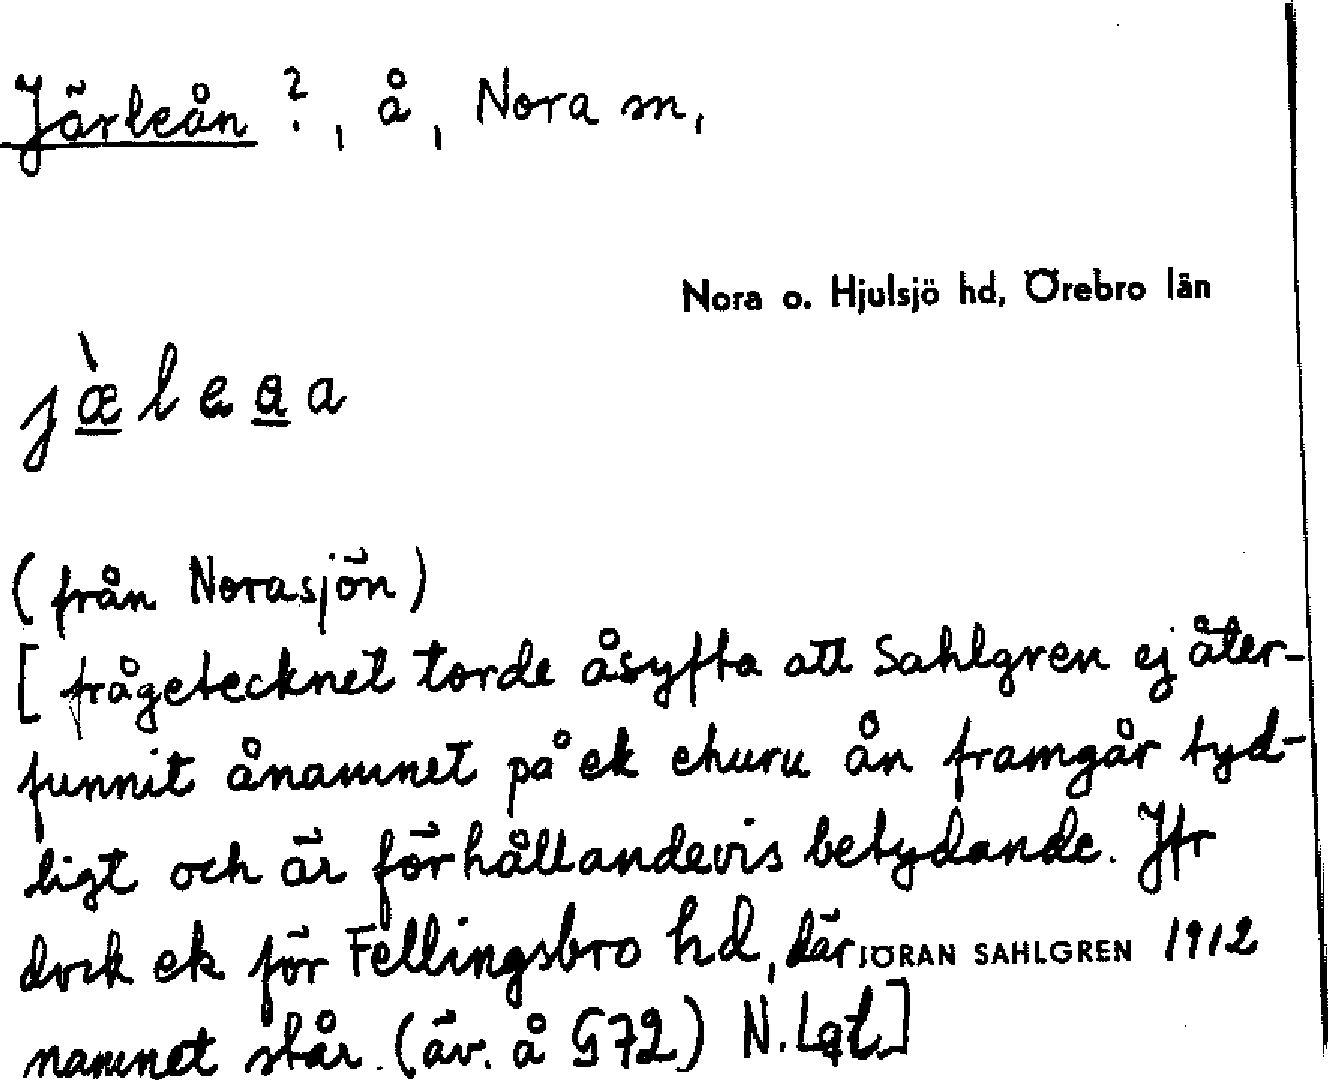 Järleån ?, å, Nora sn,
Nora o. Hjulsjö hd, Örebro län
jæ̀leaa
(från Norasjön)
[frågetecknet torde åsyfta att Sahlgren ej åter-
funnit ånamnet på ek ehuru ån framgår tyd-
ligt och är förhållandevis betydande. Jfr
dock ek för Fellingsbro hd, där
JÖRAN SAHLGREN 1912
namnet står. (äv. å G72) N. Lgt]